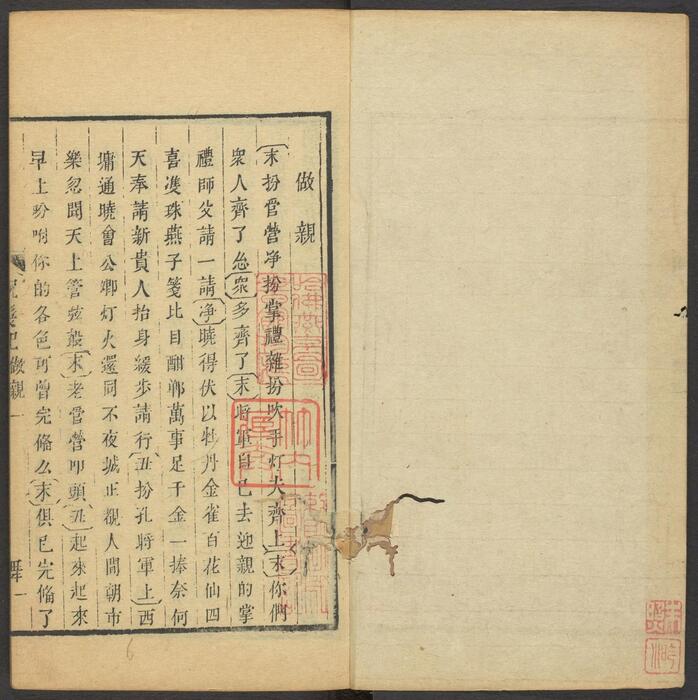 做親
〔末扮官營淨扮掌禮雜扮吹手灯夫齊上〕〔末〕你們
衆人齊了么〔衆〕多齊了〔末〕將軍自己去迎親的掌
禮師父請一請〔淨〕曉得伏以牡丹金雀百花仙四
喜雙珠燕子箋比目酣鄲萬事足千金一捧奈何
天奉請新貴人抬身緩步請行〔丑扮孔將軍上〕西
墉通曉會公卿灯火還同不夜城正覩人間朝市
樂忽聞天上管絃般〔末〕老官營叩頭〔丑〕起來起來
早上吩咐你的各色可曾完俻么〔末〕俱已完俻了
做親 一